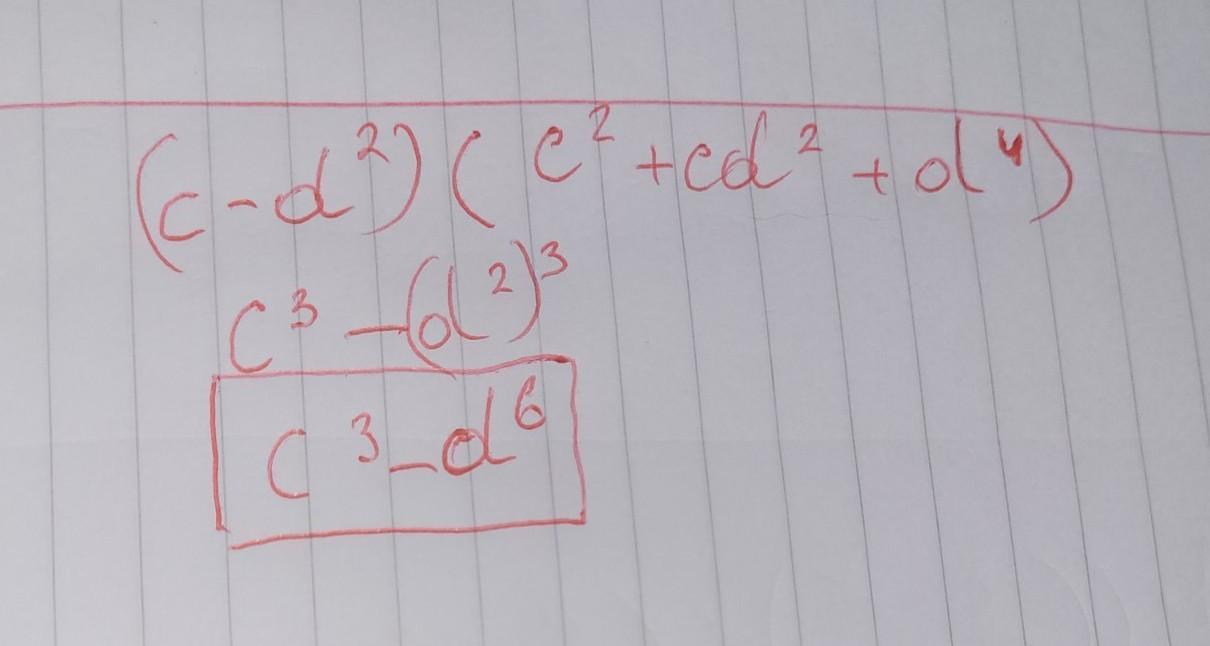 (c-d²)(c²+cd²+d⁴)
c³-(d²)³
c³-d⁶